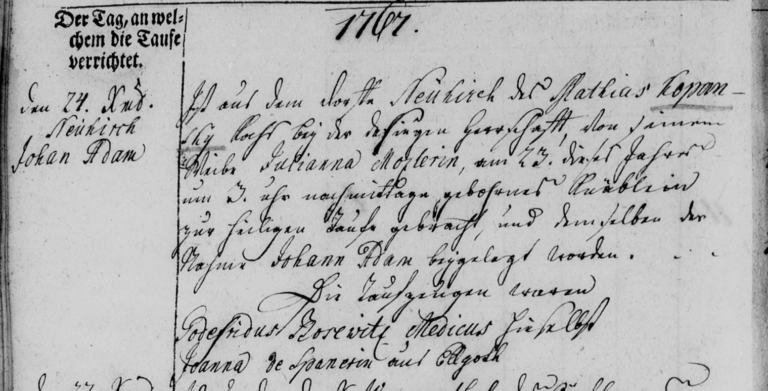 Der Tag, an wel-
chem die Taufe
verrichtet.
1767.
den 24. Xbr.
Neükirch
Johan Adam
Ist aus dem dorffe Neükirch des Mathias Kopan-
sky Kochs bey der hiesigen Herrschafft, von seinem
Weibe Julianna Moslerin, am 23. dieses Jahrs
um 3. uhr nachmittage gebohrnes Knäblein
zur heiligen Taufe gebracht, und demselben der
Nahme Johann Adam beygelegt worden.
Die Taufzeugen waren
Godefridus Rosewitz Medicus hieselbst
Joanna de Spanerin aus Ellgoth